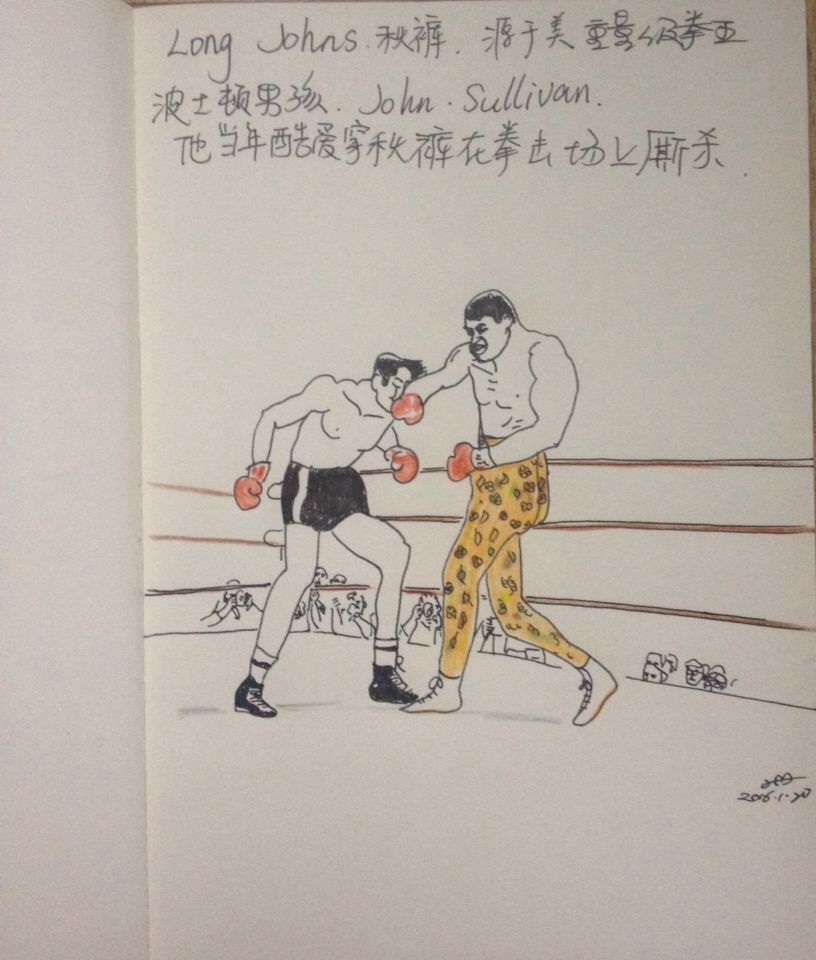 Long Johns.秋裤. 源于美重量级拳王
波士顿男孩. John. Sullivan.
他当年酷爱穿秋裤在拳击场上厮杀.
2016.1.20